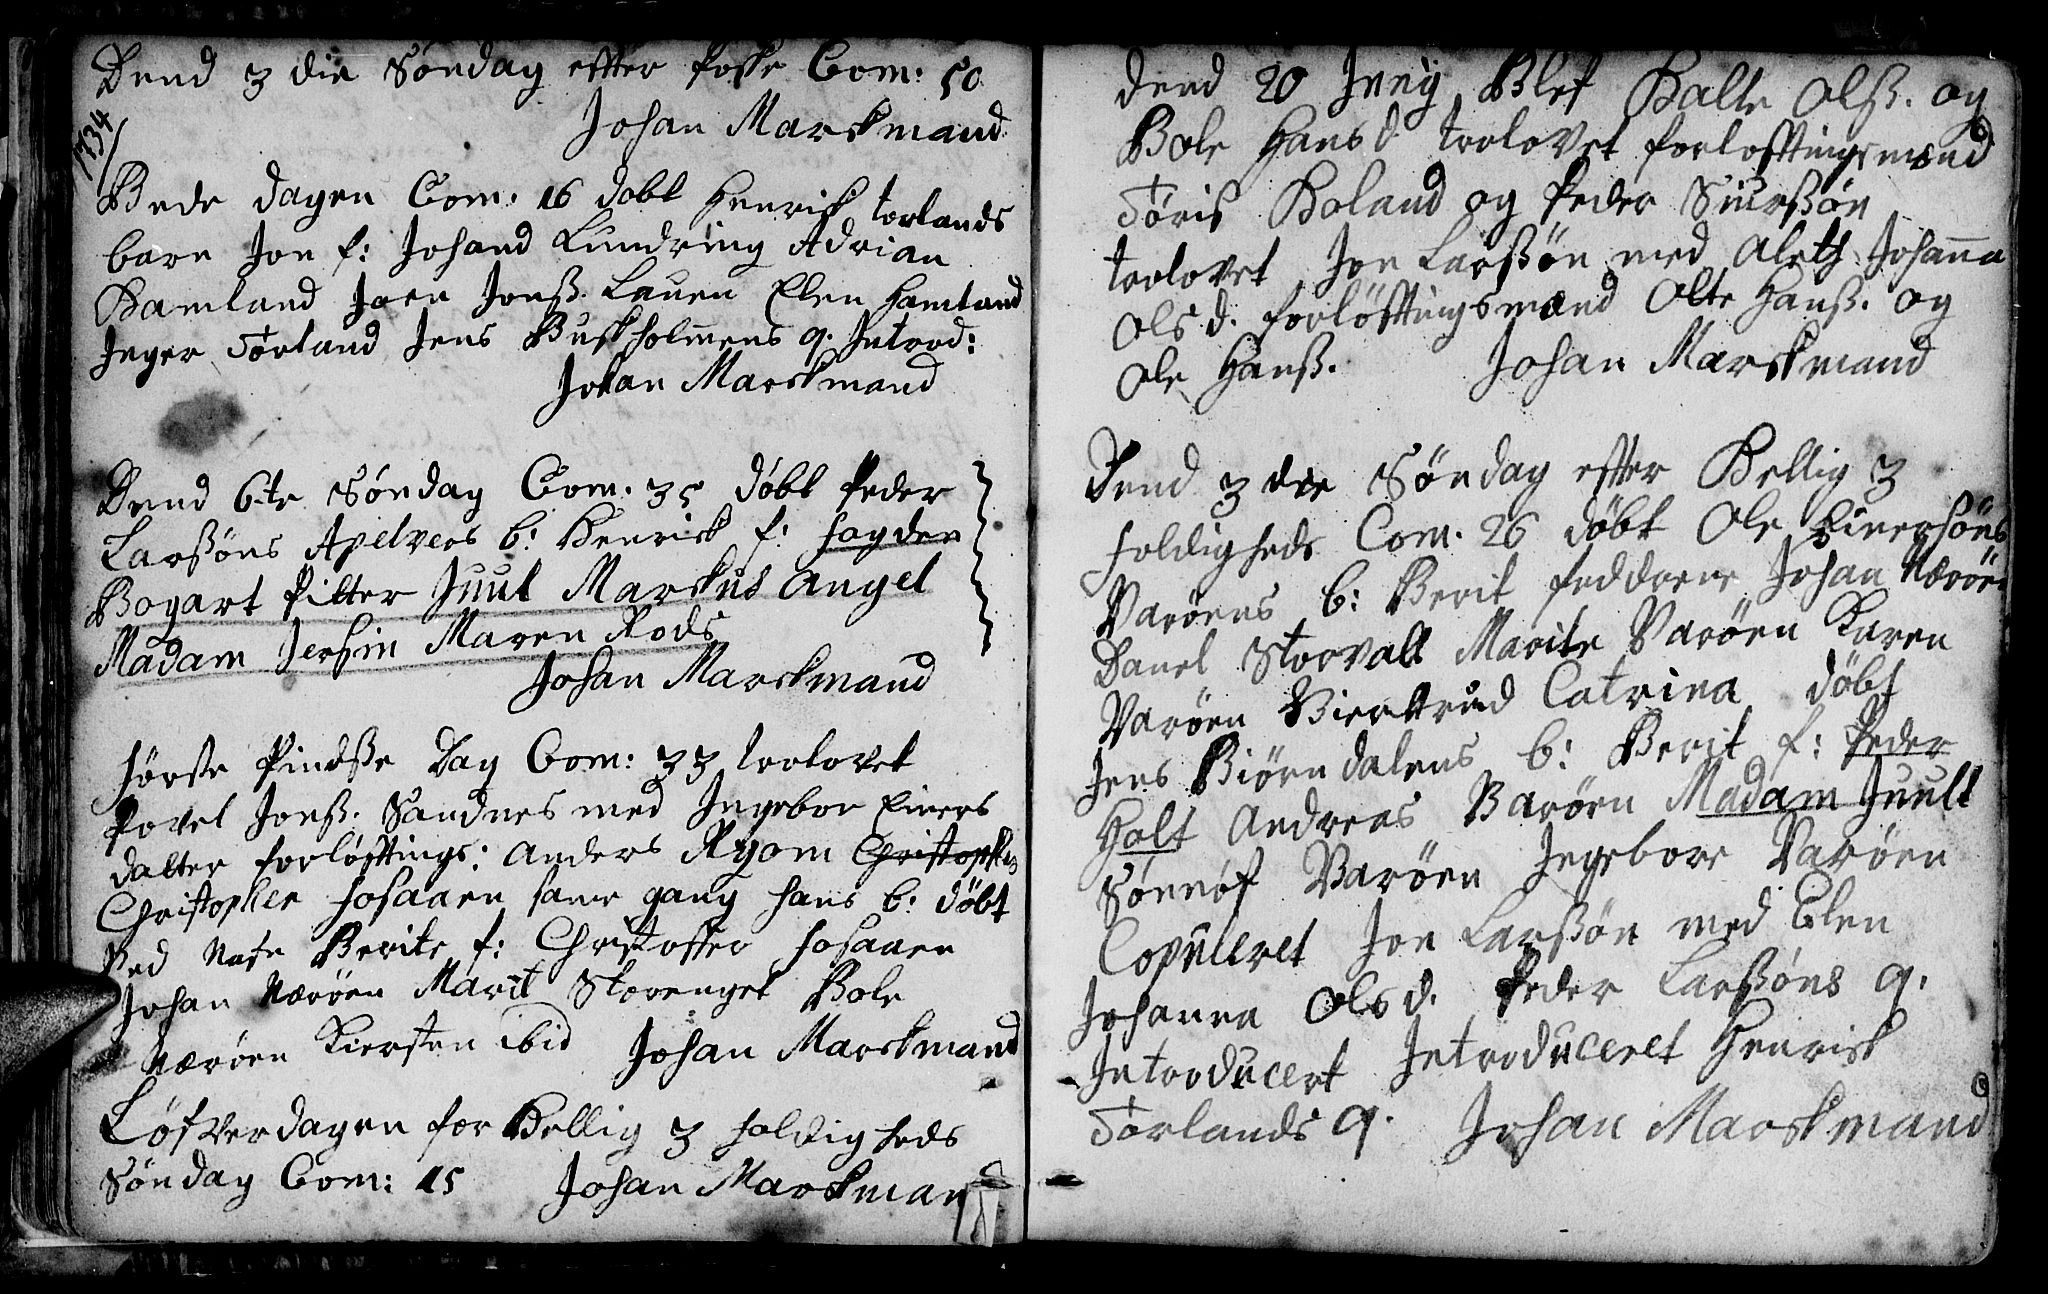 Dend 3 die Søndag efter Poske Com: 50
Johan Marskmand
1734
Bede dagen Com: 16 dobt Henrick Torlands
barn Jon f: Johand Lundring Adrian
Damland Joen Jonß. Lauen Elen Hamland
Inger Torland Jens Buskholmens q. Introd:
Johan Marskmand
Dend 6te Søndag Com. 35 døbt Peder
Larßøns Apelvers b: Henrick f: Hagden
Bogart Pitter Juul Marskus Angel
Madam Jersin Maren Rods
Johan Marskmand
Første Pindsse Dag Com: 33 trolovet
Povel Jonß. Sandnes med Ingebor Einers
datter forløfftings: Anders Ryom Christopher
Christopher Hosaaen same gang hans b: døbt
Ved Nafn Berite f: Christoffer Hosaaen
Johan Nærøen Marit Storenget Bole
Nærøen Kiersten ibid Johan Marskmand
Løfverdagen for Hellig 3 foldigheds
Søndag Com: 15 Johan Marskmand
dend 20 Juny Blef Balte Olß. og
Bole Hansd trolovet forlofftingsmænd
Tøris Boland og Peder Siurßøn
trolovet Jon Larßøn med Aleth Johanna
Olsd. forløfftingsmænd Olte Hanß. og
Ole Hanß. Johan Marskmand
Dend 3 die Søndag efter Hellig 3
foldigheds Com. 26 døbt Ole Einersøns
Varøens b: Berit fadderne Johan Nærøen
Danel Storvalt Marite Varøen Karen
Varøen Giertrud Catrina døbt
Jens Biørndalens b: Berit f: Peder
Holt Andreas Varøen Madam Juult
Sønnøf Varøen Ingebore Varøen
Copuleret Jon Larßøn med Elen
Johanna Olsd. Peder Larßøns q.
Introducert Introduceret Henrick
Torlands q. Johan Marskmand